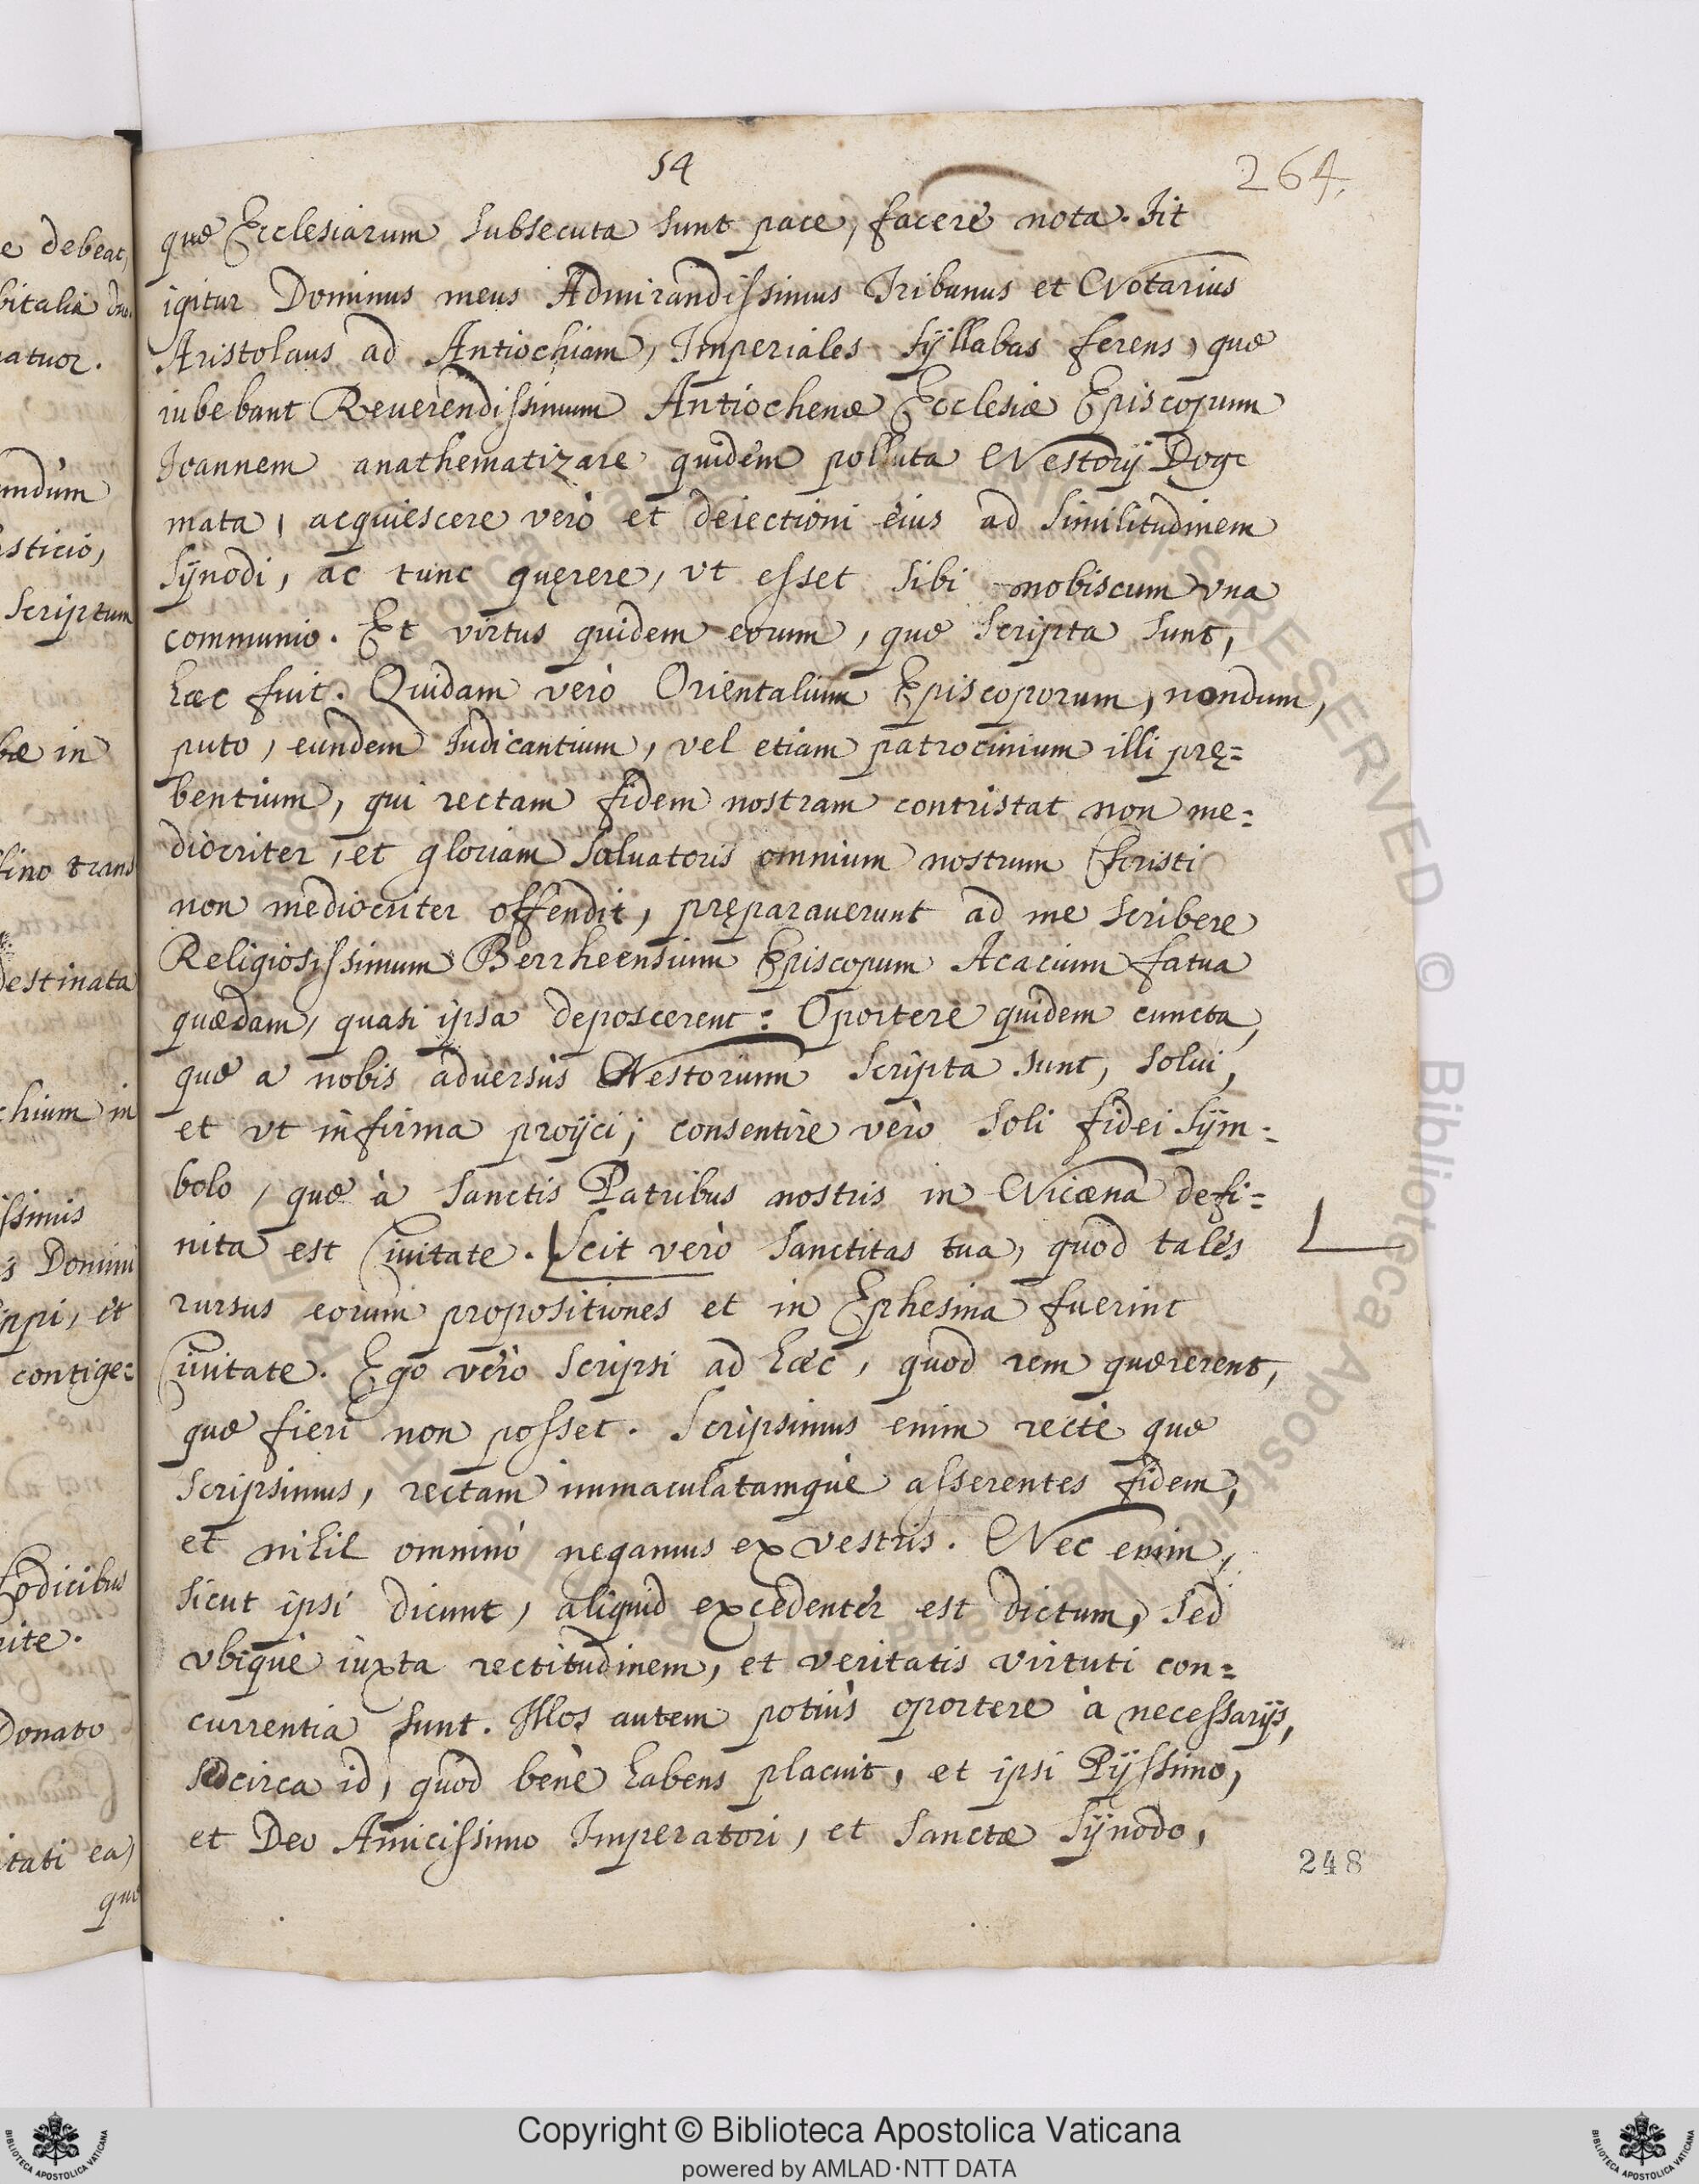 54
264.
quæ Ecclesiarum subsecuta sunt pace, facere nota. Iit
igitur Dominus meus Admirandissimus Tribunus et Notarius
Aristolaus ad Antiochiam, Imperiales syllabas ferens, quæ
iubebant Reuerendissimum Antiochenæ Ecclesiæ Episcopum
Ioannem anathematizare quidem polluta Nestorij Dog-
mata, acquiescere verò et deiectioni eius ad similitudinem
Synodi, ac tunc quęrere, vt esset sibi nobiscum vna
communio. Et virtus quidem eorum, quæ scripta sunt,
hæc fuit. Quidam verò Orientalium Episcoporum, nondum,
puto, eundem Iudicantium, vel etiam patrocinium illi prę=
bentium, qui rectam fidem nostram contristat non me=
diocriter, et gloriam Saluatoris omnium nostrum Christi
non mediocriter offendit, pręparauerunt ad me scribere
Religiosissimum Berrheensium Episcopum Acacium fatua
quædam, quasi ipsa deposcerent: Oportere quidem cuncta,
quæ a nobis aduersùs Nestorium scripta sunt, solui,
et vt infirma proijci; consentire verò soli fidei Sym=
bolo, quæ à Sanctis Patribus nostris in Nicæna defi=
nita est Ciuitate. Scit verò Sanctitas tua, quod tales
rursus eorum propositiones et in Ephesina fuerint
Ciuitate. Ego verò scripsi ad hæc, quod rem quærerent,
quæ fieri non posset. Scripsimus enim rectè quæ
scripsimus, rectam immaculatamque asserentes fidem,
et nihil omninò negamus ex vestris. Nec enim,
sicut ipsi dicunt, aliquid excedenter est dictum, sed
vbique iuxta rectitudinem, et veritatis virtuti con=
currentia sunt. Illos autem potiùs oportere à necessarijs,
sed circa id, quod benè habens placuit, et ipsi Pijssimo,
et Deo Amicissimo Imperatori, et Sanctæ Synodo,
248
e debeat,
bitalia
atuor.
undum
sticio,
scriptum
bæ in
fino trans
destinata
chium in
ssimis
s Domini
ippi, et
contige=
Codicibus
rite.
Donato
itati ea
quæ
Copyright © Biblioteca Apostolica Vaticana
powered by AMLAD・NTT DATA